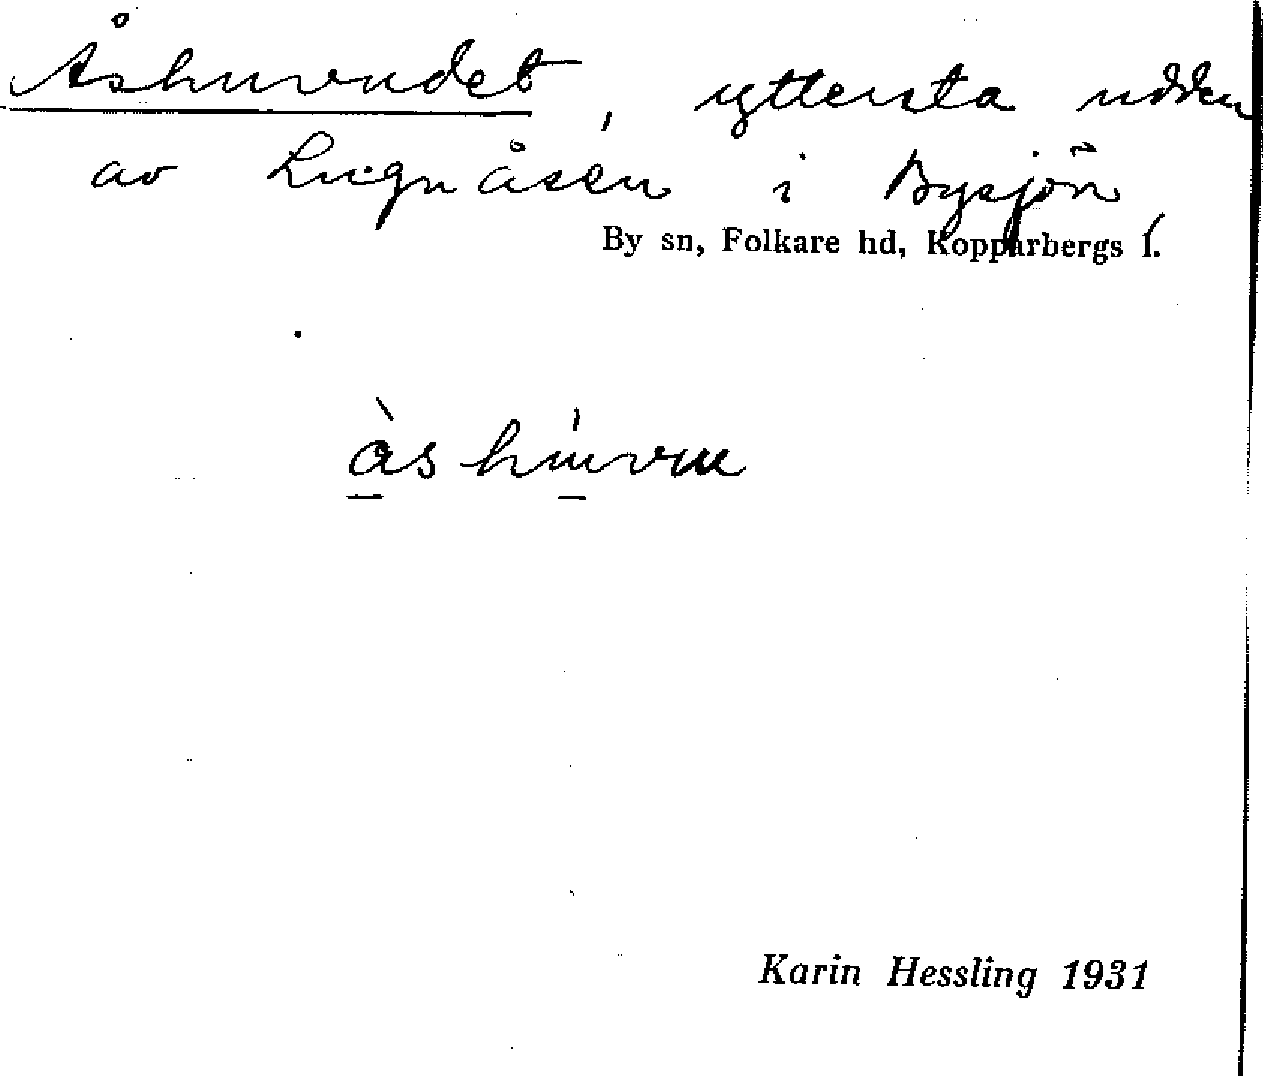 Åshuvudet, yttersta udden
av Lugnåsen i Bysjön
By sn, Folkare hd, Kopparbergs l.
Karin Hessling 1931